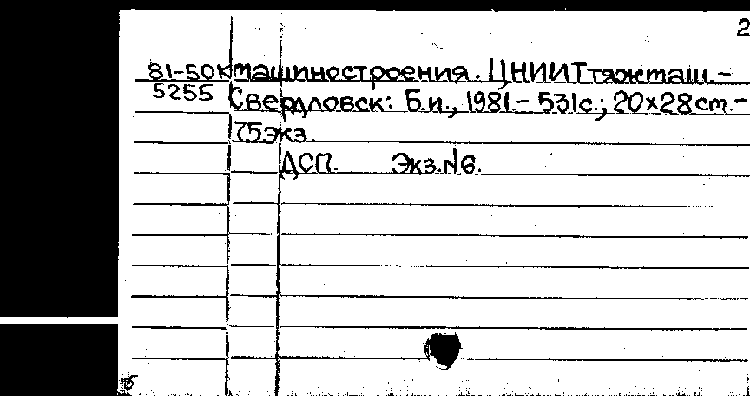 2
81-50к машиностроения. ЦНИИТтяжмаш. -
5255 Свердловск: Б.и., 1981 - 531с.; 20×28см. -
75экз.
ДСП. Экз.№6.